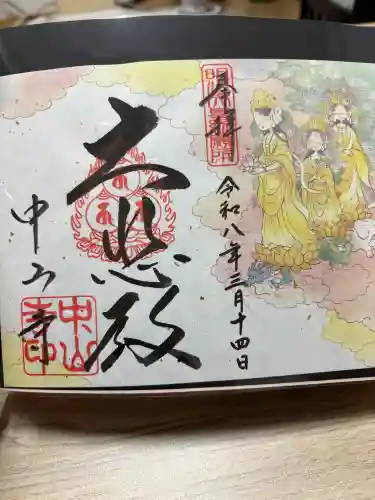 奉拝
令和八年三月十四日
大悲殿
中山寺
中山寺印